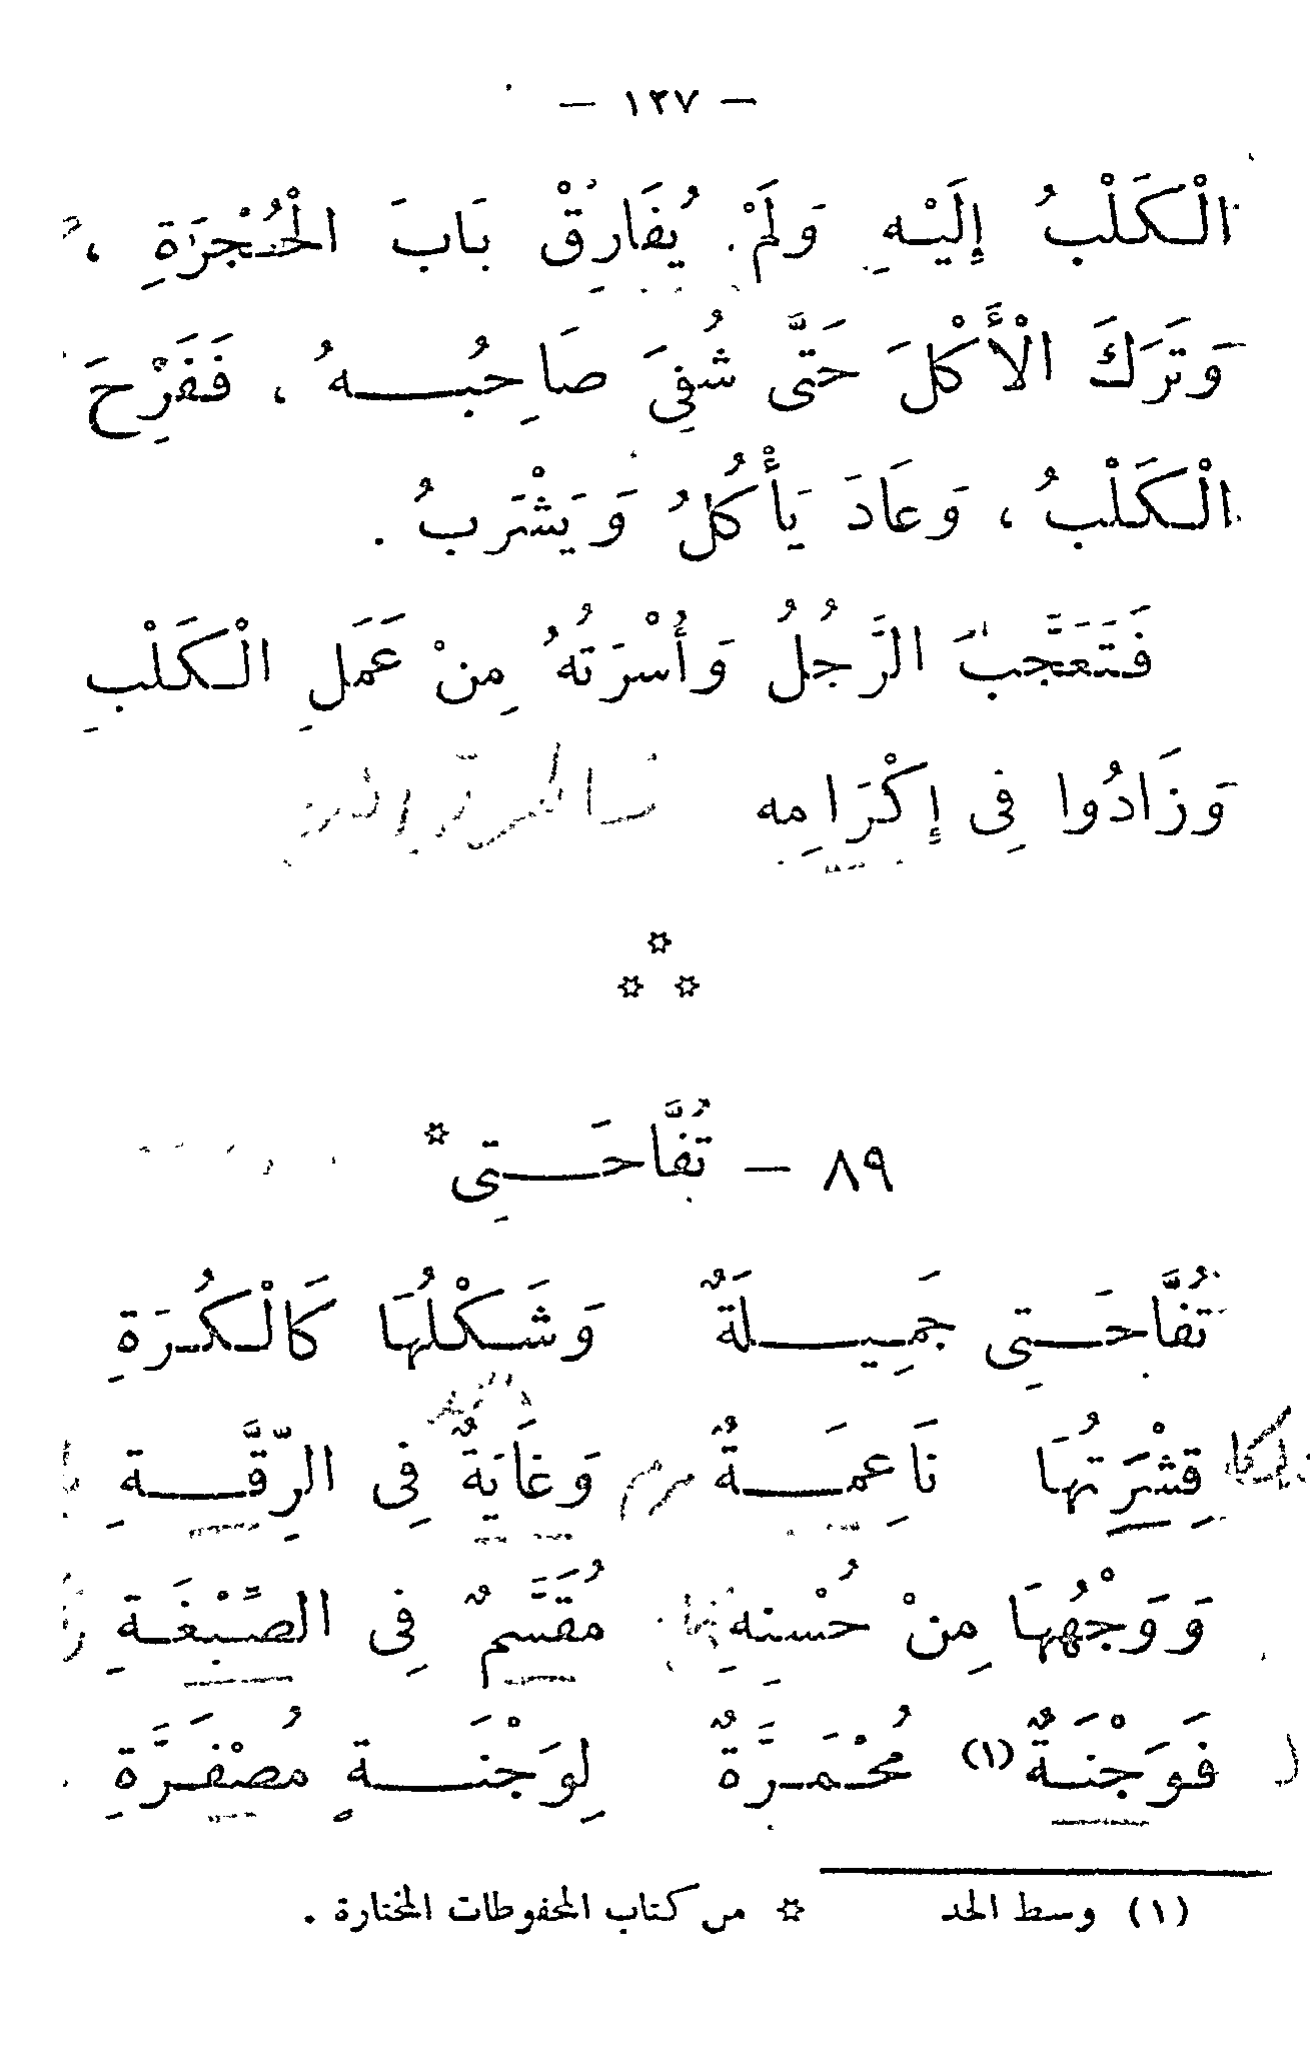 — ١٢٧ —
الْكَلْبُ إِلَيْهِ وَلَمْ يُفَارِقْ بَابَ الْحُجْرَةِ ،
وَتَرَكَ الْأَكْلَ حَتَّى شُفِىَ صَاحِبُهُ ، فَفَرِحَ
الْكَلْبُ ، وَعَادَ يَأْكُلُ وَيَشْرَبُ .
فَتَعَجَّبَ الرَّجُلُ وَأُسْرَتُهُ مِنْ عَمَلِ الْكَلْبِ
وَزَادُوا فِى إِكْرَامِه
٨٩ — تُفَّاحَتِى *
تُفَّاحَتِى جَمِيلَةٌ وَشَكْلُهَا كَالْكُرَةِ
قِشْرَتُهَا نَاعِمَةٌ وَغَايَةٌ فِى الرِّقَّةِ
وَوَجْهُهَا مِنْ حُسْنِهِ مُقَسَّمٌ فِى الصَّبْغَةِ
فَوَجْنَةٌ (١) مُحْمَرَّةٌ لِوَجْنَةٍ مُصْفَرَّةِ
(١) وسط الخد * من كتاب المحفوظات المختارة .